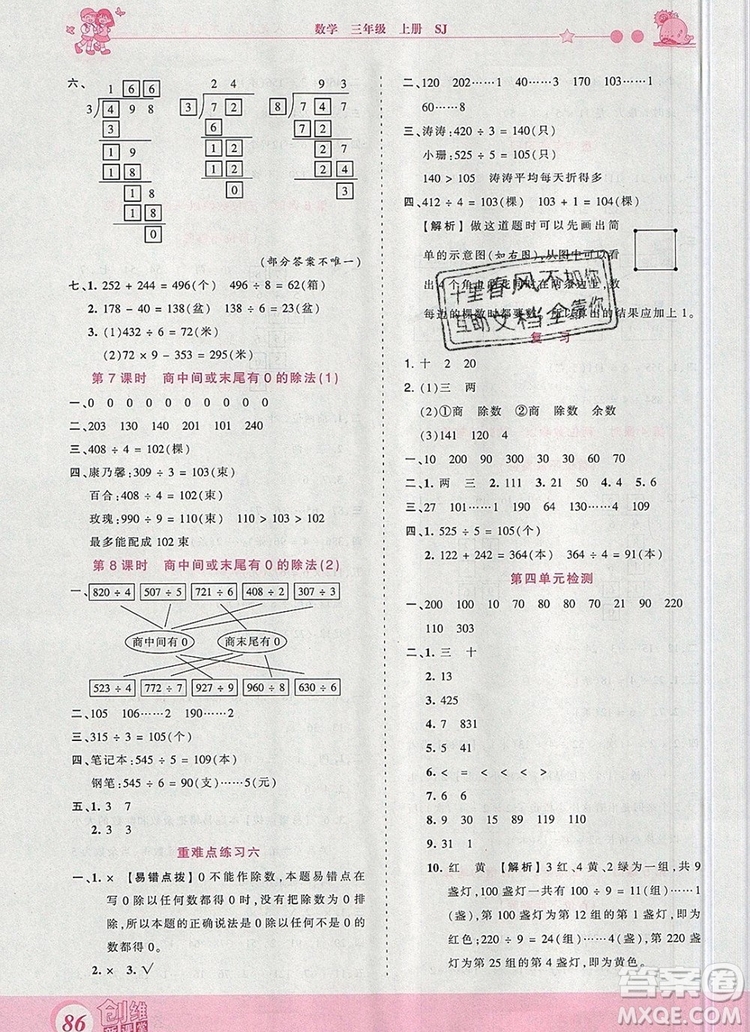 数学 三年级 上册 SJ
六、
1 6 6
3 4 9 8
3
1 9
1 8
1 8
1 8
0
2 4
3 7 2
6
1 2
1 2
0
9 3
(部分答案不唯一)
七、1. 252 + 244 = 496(个) 496 ÷ 8 = 62(箱)
2. 178 - 40 = 138(盆) 138 ÷ 6 = 23(盆)
3. (1)432 ÷ 6 = 72(元)
(2)72 × 2 = 144(元)
第 7 课时 商中间或末尾有 0 的除法(1)
一、0 0 0 0 0 0 0 0 0 0
二、203 130 101 140 230 240
三、408 ÷ 4 = 102(棵)
四、康乃馨:309 ÷ 3 = 103(束)
百合:408 ÷ 4 = 102(束)
玫瑰:990 ÷ 9 = 110(束) 110 > 103 > 102
最多能配成 102 束
第 8 课时 商中间或末尾有 0 的除法(2)
一、 820 ÷ 4 507 ÷ 5 721 ÷ 6 408 ÷ 2 307 ÷ 3
商中间有 0 商末尾有 0
523 ÷ 4 772 ÷ 7 927 ÷ 9 560 ÷ 4 242 ÷ 8
二、105 106……2 190……2 201……2
三、515 ÷ 5 = 103(个)
四、笔记本:545 ÷ 5 = 109(本)
钢笔:545 ÷ 6 = 90(支)……5(元)
五、1. 3 7
2. 3 3
重难点练习六
一、1. × 【易错点拨】0 不能作除数,本题易误
写 0 除以任何数都得 0,0 不能作除
数,所以本题的正确说法是 0 除以任何
不是 0 的数都得 0。
2. × 3. √
二、120 202 103……3 80……1 106……2
60……8
三、涛涛:420 ÷ 3 = 140(只)
小珊:525 ÷ 5 = 105(只)
140 > 105 涛涛平均每天折得多
四、412 ÷ 4 = 103(棵) 103 + 1 = 104(棵)
【解析】 做这道题时可以先画出简
单的示意图(如右图),从图中可以看
每边的棵数时都要加 1。
十里春风不如你
互助文档全靠你
复 习
1. 十 2 20
2. (1)三 两
(2)①商 除数 ②商 除数 余数
(3)141 2 122……4
一、10 200 90 70 20 100
二、1. 两 三 2. 111 3. 0
三、27 101……1 60……6 190……4 110……6
四、1. 525 ÷ 5 = 105(个)
2. 122 + 242 = 364(本) 364 ÷ 7 = 52(本)
第四单元检测
一、200 100 10 80 70 21 70 90 220
110 303
二、1. 三 十
2. 13
3. 425
4. 7 831
5. 41
6. < = < < < >
7. 9 30 119 60 15
8. 30 30 119 60 15
9. 31 1
10. 红 黄 【解析】3 红,4 黄,2 绿为一组,共 9
盏灯,第 100 盏灯:100 ÷ 9 = 11(组)……
1(盏),第 100 盏灯为第 12 组的第 1 盏灯,即为
红色;220 ÷ 9 = 24(组)……4(盏),第 220
盏灯为第 25 组的第 4 盏灯,即为黄色。
86
创维
新课堂
答案圈
MXQE.COM